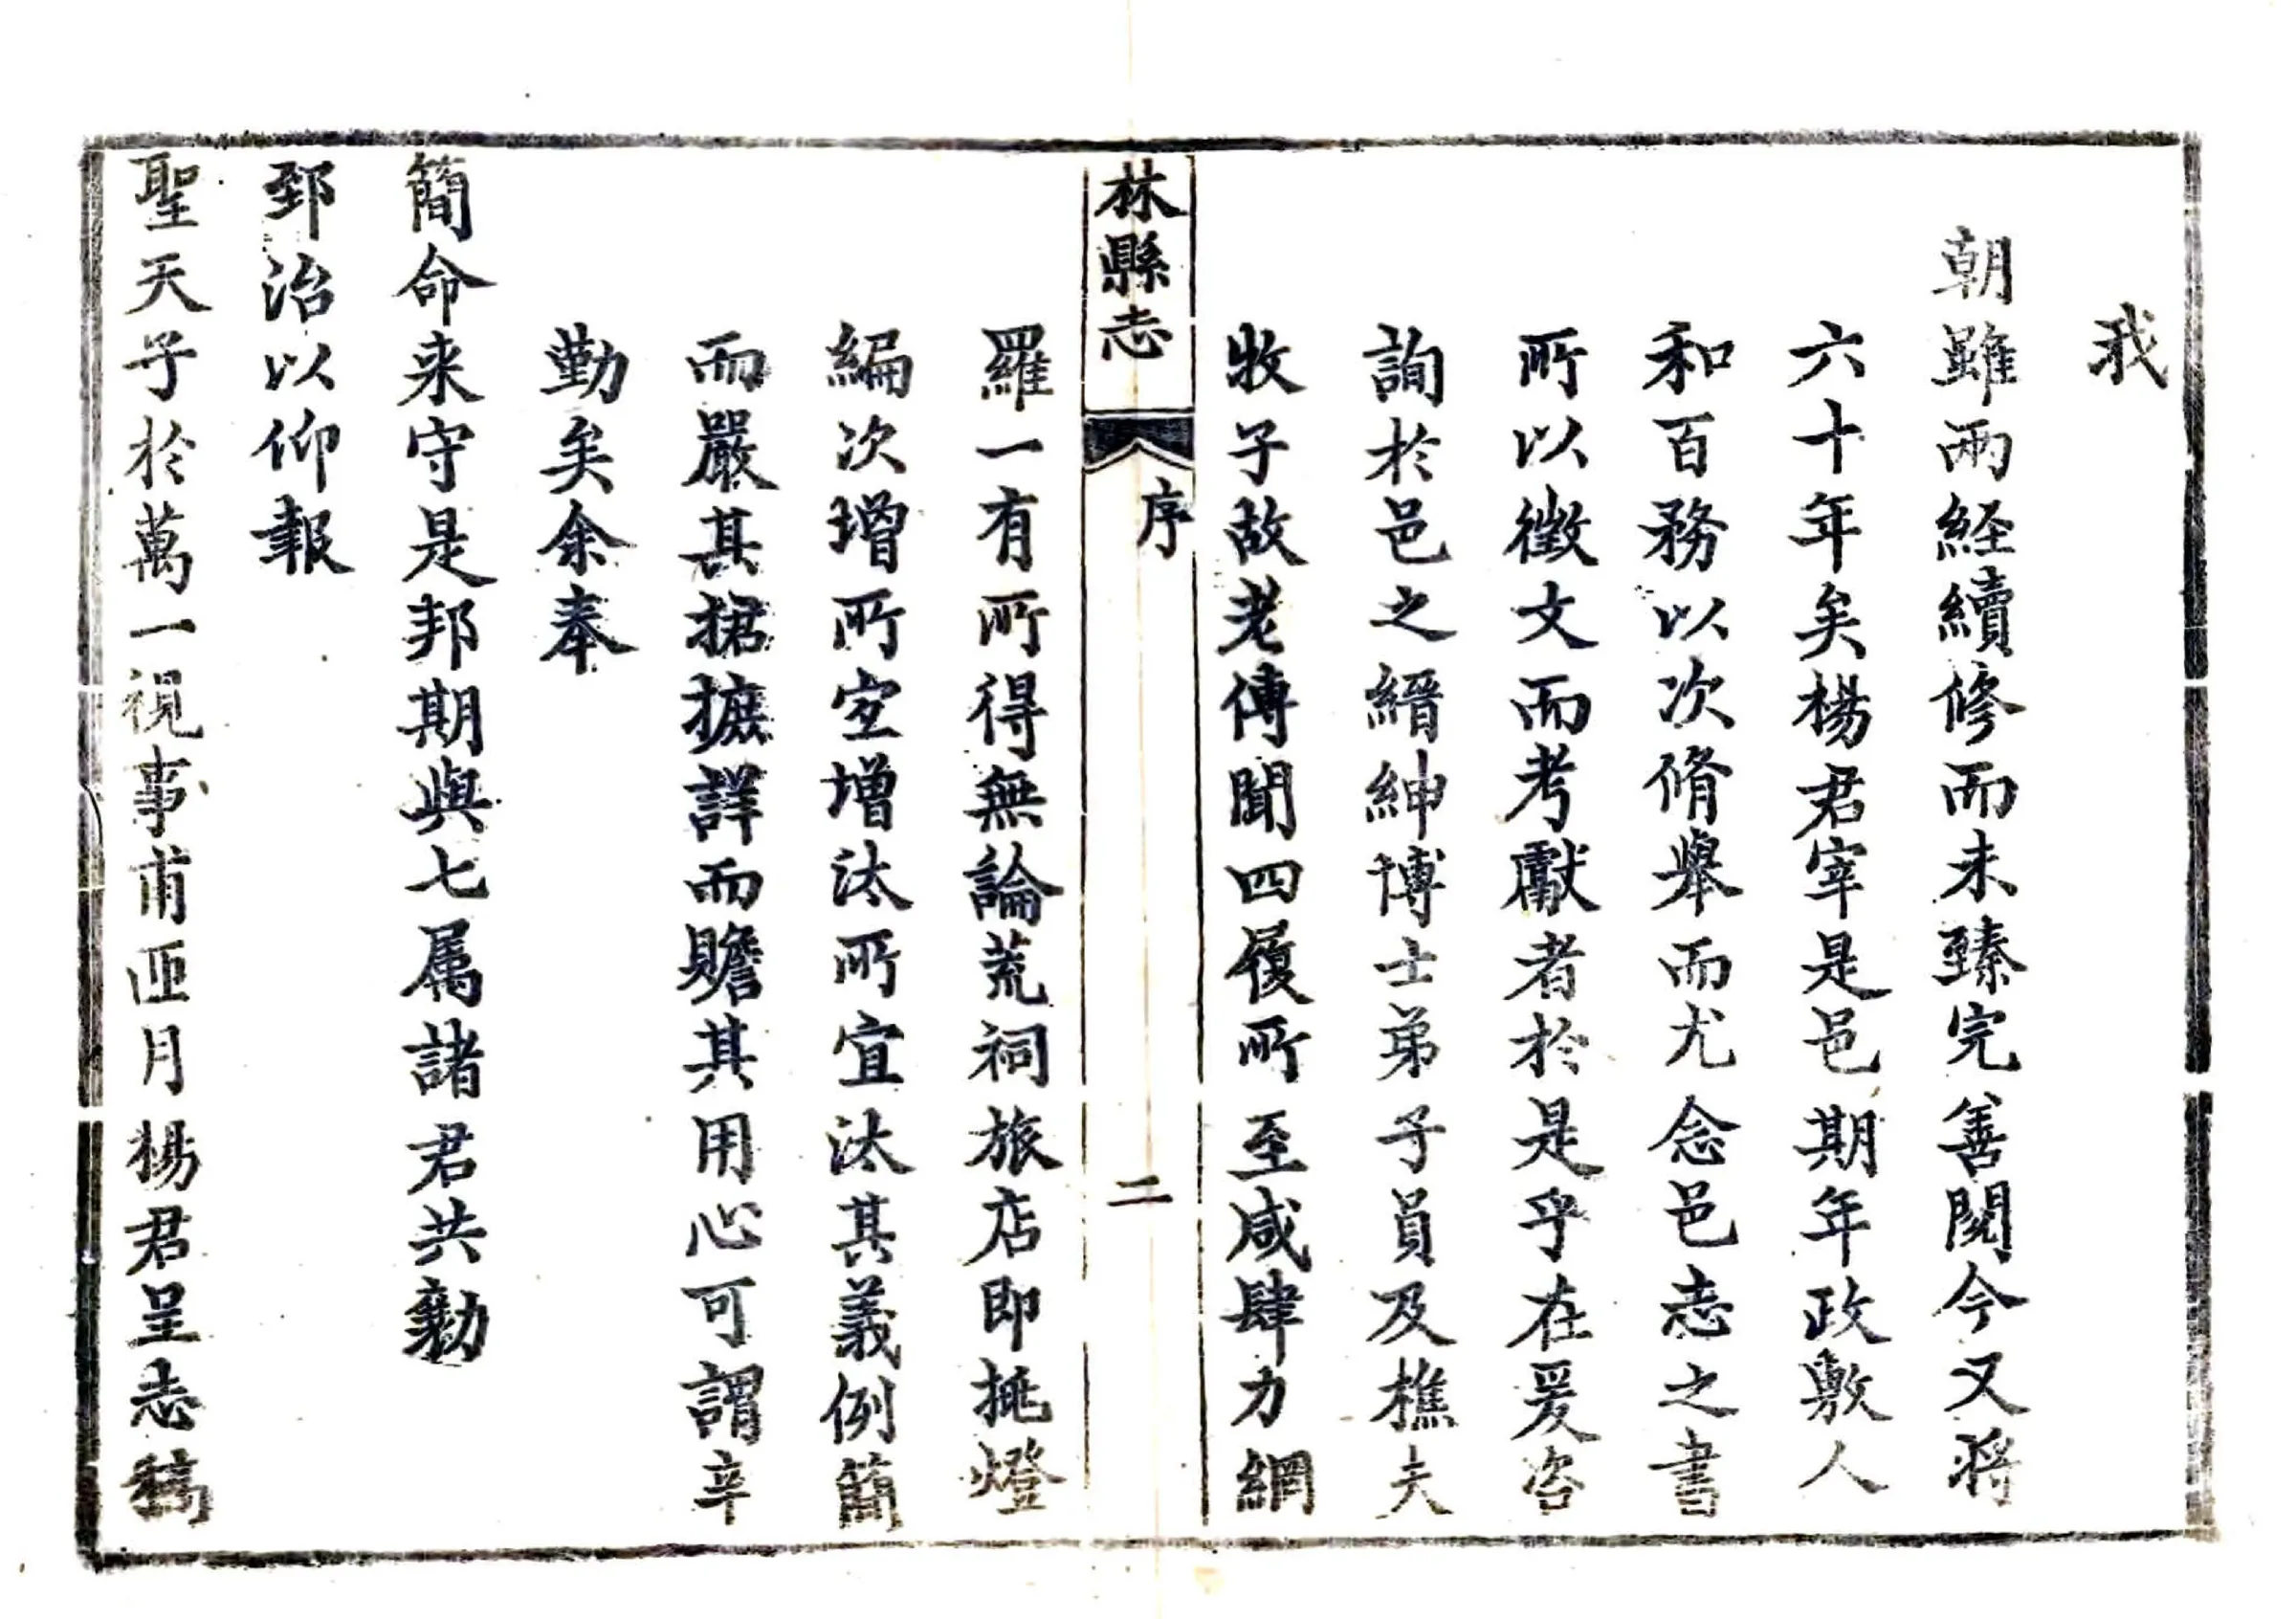 我
朝雖兩経續修而未臻完善閱今又将
六十年矣楊君宰是邑期年政敷人
和百務以次脩舉而尤念邑志之書
所以徵文而考獻者於是乎在爰咨
詢於邑之縉紳博士弟子員及樵夫
牧子故老傳聞四履所至咸肆力網
林縣志
序
二
羅一有所得無論荒祠旅店即挑燈
編次增所宜增汰所宜汰其義例簡
而嚴其捃摭詳而贍其用心可謂辛
勤矣余奉
簡命来守是邦期與七属諸君共勷
郅治以仰報
聖天子於萬一視事甫匝月楊君呈志稿